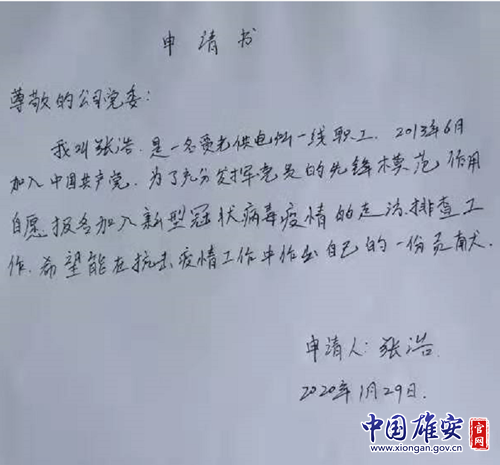 申请书
尊敬的公司党委:
我叫张浩,是一名受光供电所一线职工,2013年6月
加入中国共产党,为了充分发挥党员的先锋模范作用
自愿报名加入新型冠状病毒疫情的走访排查工
作,希望能在抗击疫情工作中作出自己的一份贡献.
申请人:张浩.
2020年1月29日.
中国雄安 官网
www.xiongan.gov.cn